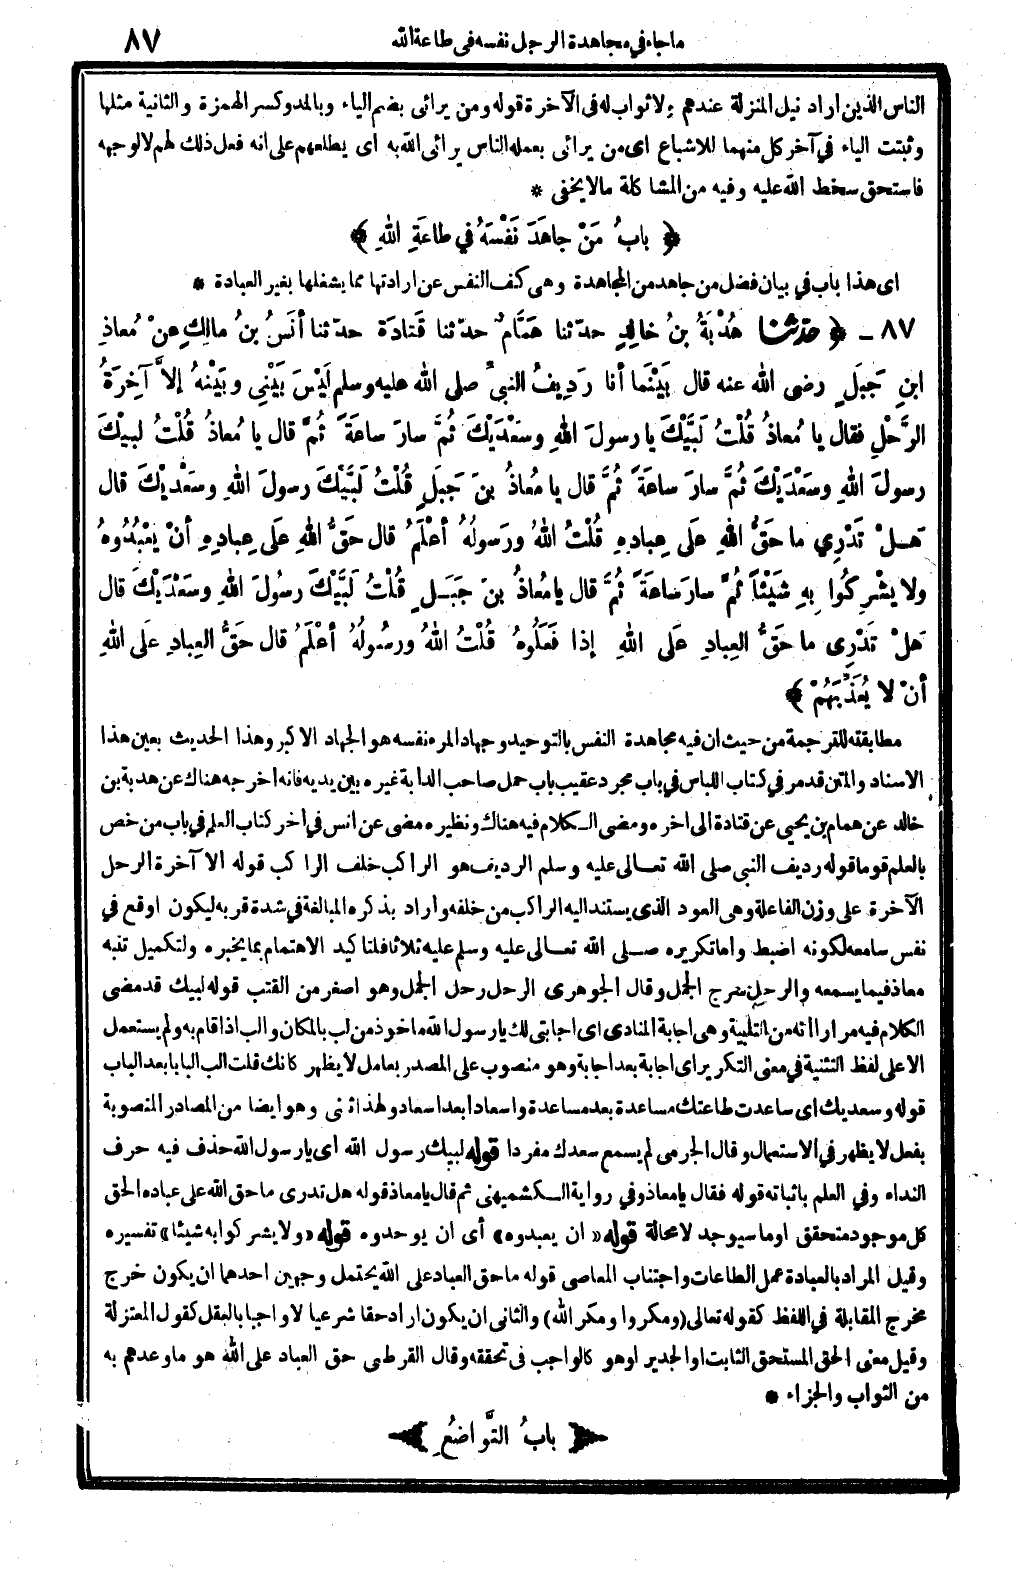 ماجاء في مجاهدة الرجل نفسه في طاعة الله ٨٧
الناس الذين اراد نيل المنزلة عندهم ولا ثواب له في الآخرة قوله ومن يرائى بضم الياء وبالمد وكسر الهمزة والثانية مثلها
وثبتت الياء في آخر كل منهما للاشباع اى من يرائى بعمله الناس يرائى الله به اى يطلعهم على انه فعل ذلك لهم لا لوجهه
فاستحق سخط الله عليه وفيه من المشاكلة مالا يخفى *
﴿ بابُ مَنْ جاهَدَ نَفْسَهُ في طاعَةِ اللهِ ﴾
اى هذا باب في بيان فضل من جاهد من المجاهدة وهى كف النفس عن ارادتها مما يشغلها بغير العبادة *
٨٧ - ﴿ حدّثنا هُدْبَةُ بنُ خالِدٍ حدّثنا هَمَّامٌ حدّثنا قَتادَةَ حدّثنا أنَسُ بنُ مالِكٍ عنْ مُعاذِ
ابنِ جَبَلٍ رضى الله عنه قال بَيْنَما أنا رَدِيفُ النبىِّ صلى الله عليه وسلم لَيْسَ بَيْنِى وبَيْنَهُ إلاَّ آخِرَةُ
الرَّحْلِ فقال يا مُعاذُ قُلْتُ لَبَّيْكَ يا رسولَ اللهِ وسَعْدَيْكَ ثُمَّ سارَ ساعَةً ثُمَّ قال يا مُعاذُ قُلْتُ لبيكَ
رسولَ اللهِ وسَعْدَيْكَ ثُمَّ سارَ ساعَةً ثُمَّ قال يا مُعاذُ بنَ جَبَلٍ قُلْتُ لَبَّيْكَ رسولَ اللهِ وسَعْدَيْكَ قال
هَلْ تَدْرِي ما حَقُّ اللهِ عَلَى عِبادِهِ قُلْتُ اللهُ ورَسولُهُ أعْلَمُ قال حَقُّ اللهِ عَلَى عِبادِهِ أنْ يَعْبُدُوهُ
ولا يشْرِكُوا بِهِ شَيْئاً ثُمَّ سارَ ساعَةً ثُمَّ قال يا مُعاذُ بنَ جَبَلٍ قُلْتُ لَبَّيْكَ رسُولَ اللهِ وسَعْدَيْكَ قال
هَلْ تَدْرِى ما حَقُّ العِبادِ عَلَى اللهِ إذا فَعَلُوهُ قُلْتُ اللهُ ورسُولُهُ أعْلَمُ قال حَقُّ العِبادِ عَلَى اللهِ
أنْ لا يُعَذِّبَهُمْ ﴾
مطابقته للترجمة من حيث ان فيه مجاهدة النفس بالتوحيد وجهاد المرء نفسه هو الجهاد الاكبر وهذا الحديث بعين هذا
الاسناد والمتن قدمر في كتاب اللباس في باب مجرد عقيب باب حمل صاحب الدابة غيره بين يديه فانه اخرجه هناك عن هدبة بن
خالد عن همام بن يحيى عن قتادة الى اخره ومضى الكلام فيه هناك ونظيره مضى عن انس في اخر كتاب العلم في باب من خص
بالعلم قوما قوله رديف النبى صلى الله تعالى عليه وسلم الرديف هو الراكب خلف الراكب قوله الا آخرة الرحل
الآخرة على وزن الفاعلة وهى العود الذى يستند اليه الراكب من خلفه واراد بذكره المبالغة في شدة قربه ليكون اوقع في
نفس سامعه لكونه اضبط واما تكريره صلى الله تعالى عليه وسلم عليه ثلاثا فلتاكيد الاهتمام بما يخبره ولتكميل تنبه
معاذ فيما يسمعه والرحل سرج الجمل وقال الجوهرى الرحل رحل الجمل وهو اصغر من القتب قوله لبيك قدمضى
الكلام فيه مرارا انه من التلبية وهى اجابة المنادى اى اجابتى لك يا رسول الله ماخوذ من لب بالمكان والب اذا قام به ولم يستعمل
الا على لفظ التثنية في معنى التكرير اى اجابة بعد اجابة وهو منصوب على المصدر بعامل لا يظهر كانك قلت الب البابا بعد الباب
قوله وسعديك اى ساعدت طاعتك مساعدة بعد مساعدة واسعادا بعد اسعاد ولهذا ثنى وهو ايضا من المصادر المنصوبة
بفعل لا يظهر في الاستعمال وقال الجرمى لم يسمع سعدك مفردا قوله لبيك رسول الله اى يا رسول الله حذف فيه حرف
النداء وفي العلم باثباته قوله فقال يا معاذ وفي رواية الكشميهنى ثم قال يا معاذ قوله هل تدرى ما حق الله على عباده الحق
كل موجود متحقق او ما سيوجد لا محالة قوله «ان يعبدوه» أى ان يوحدوه قوله «ولا يشركوا به شيئا» تفسيره
وقيل المراد بالعبادة عمل الطاعات واجتناب المعاصى قوله ما حق العباد على الله يحتمل وجهين احدهما ان يكون خرج
مخرج المقابلة في اللفظ كقوله تعالى (ومكروا ومكر الله) والثانى ان يكون اراد حقا شرعيا لا واجبا بالعقل كقول المعتزلة
وقيل معنى الحق المستحق الثابت او الجدير او هو كالواجب فى تحققه وقال القرطبى حق العباد على الله هو ما وعدهم به
من الثواب والجزاء *
﴿ بابُ التَّواضُعِ ﴾